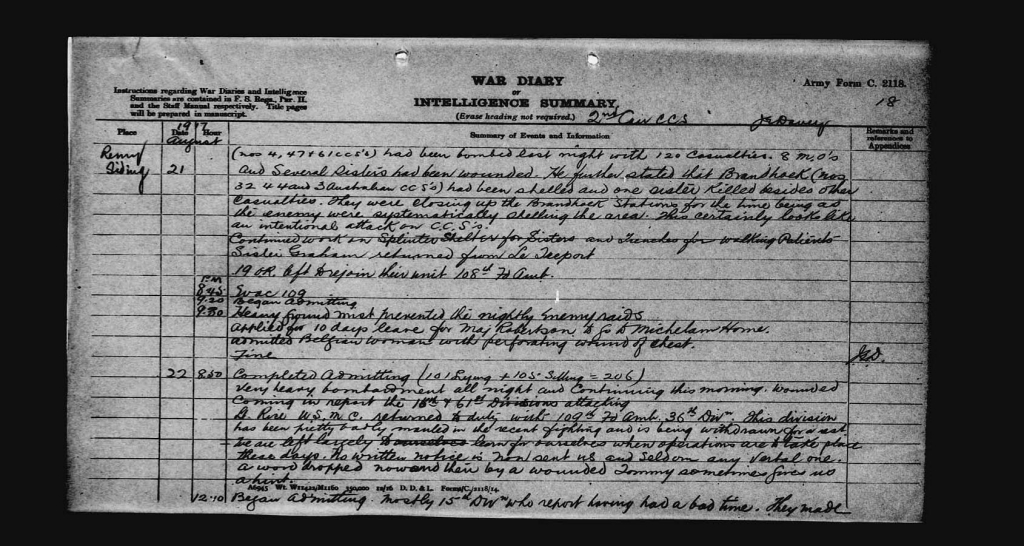 WAR DIARY
or
INTELLIGENCE SUMMARY.
(Erase heading not required.) 2nd Can CCS
Army Form C. 2118.
18
Instructions regarding War Diaries and Intelligence
Summaries are contained in F. S. Regs., Par. II.
and the Staff Manual respectively. Title pages
will be prepared in manuscript.
Place
Date
Hour
Summary of Events and Information
Remarks and
references to
Appendices
1917
August
Remy
Siding 21
(nos 4, 47 & 61 CCS's) had been bombed last night with 120 Casualties. 8 M.O's
and several Sisters had been wounded. He further stated that Brandhoek (nos
32 44 and 3 Australian CCS's) had been shelled and one sister killed besides other
Casualties. They were closing up the Brandhoek Stations for the time being as
the enemy were systematically shelling the area. This certainly looks like
an intentional attack on C.C.S's.
Continued work on Splinter Shelter for Sisters and Trenches for walking Patients
Sister Graham returned from Le Treport
19 OR left to rejoin their unit 108th Fd Amb.
P.M
8.45 Evac 109
9.20 Began Admitting
9.30 Heavy ground mist prevented the nightly Enemy raids
applied for 10 days leave for Maj Robertson to go to Michelam Home.
admitted Belgian woman with perforating wound of chest.
Fine
22 8.50 Completed Admitting (101 Lying + 105 Sitting = 206)
Very heavy bombardment all night and Continuing this morning. Wounded
Coming in report the 15th & 61st Divisions attacking
Lt Rose U.S.M.C. returned to duty with 109th Fd Amb. 36th Divn. This division
has been pretty badly mauled in the recent fighting and is being withdrawn for a rest
We are left largely to ourselves learn for ourselves when operations are to take place
these days. No written notice is now sent us and seldom any verbal one.
a word dropped now and then by a wounded Tommy sometimes gives us
a hint.
12.10 Began Admitting mostly 15th Divn who report having had a bad time. They made